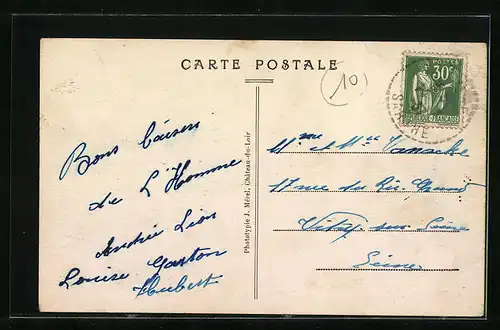 CARTE POSTALE
(10)
POSTES
30c
REPUBLIQUE FRANÇAISE
SARTHE
Bons baisers
de L'Homme
Andrée Lion
Louise Gaston
Hubert
Phototypie J. Mérel, Château-du-Loir
Mme et Mr
17 rue du
Vitry sur Seine
Seine